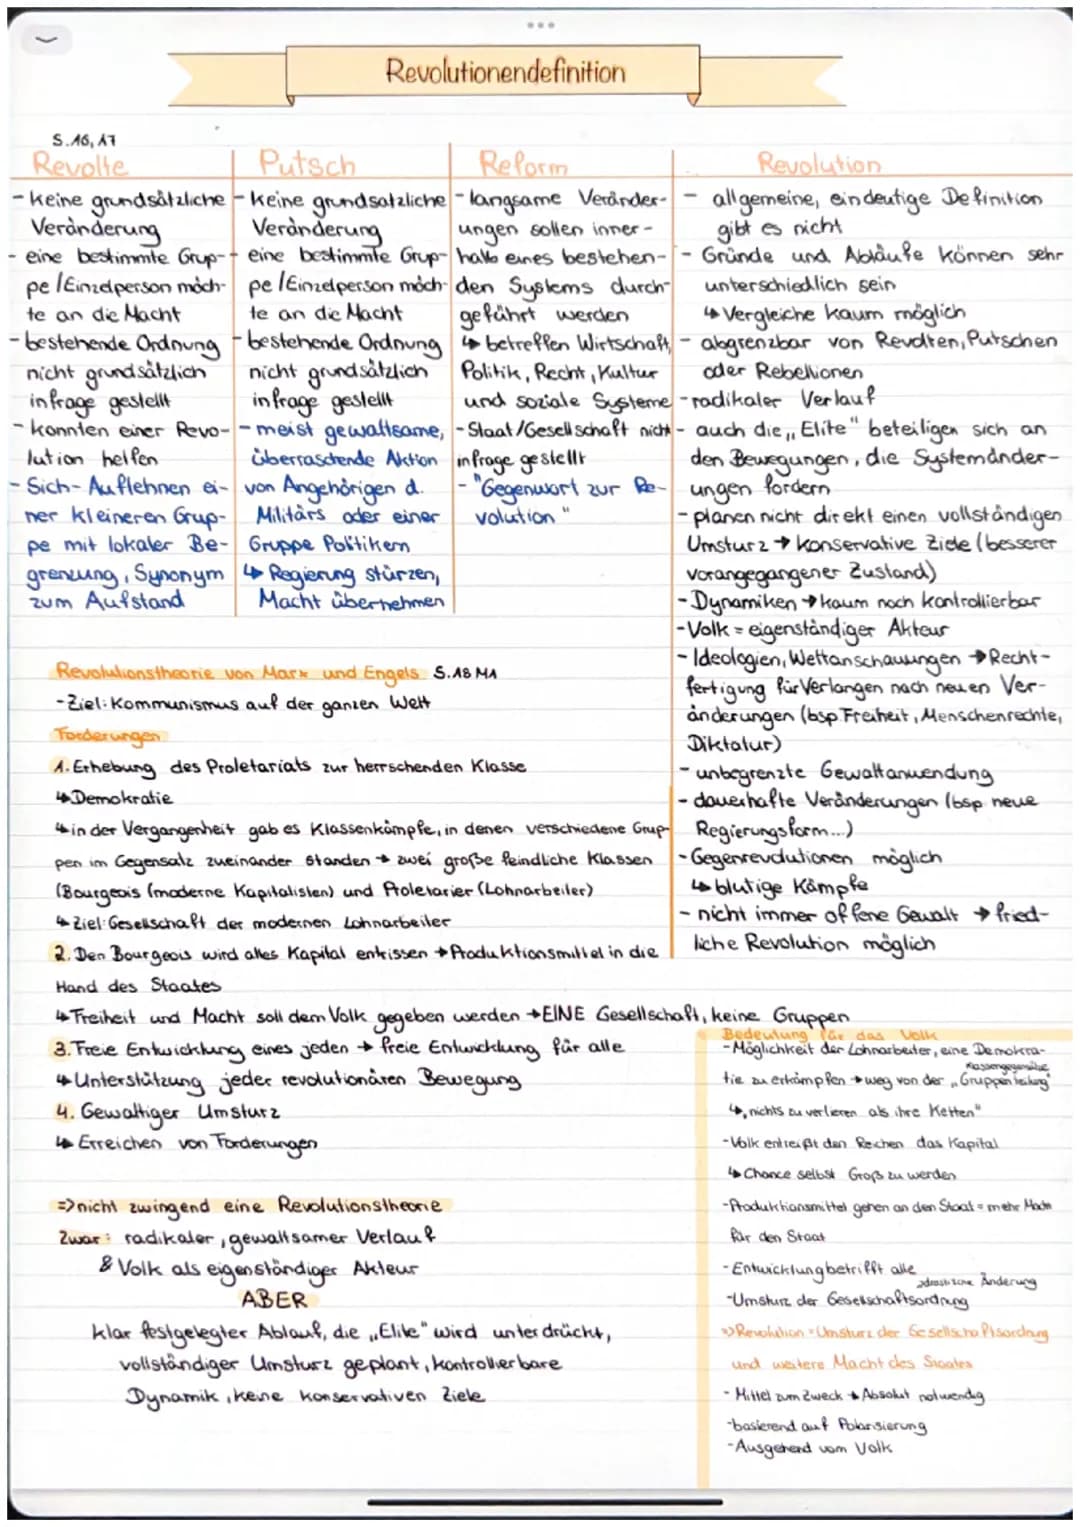 Revolutionendefinition
S. 16, 17
Revolte
- keine grundsätzliche
Veränderung
- eine bestimmte Grup-
pe/Einzelperson möch-
te an die Macht
- bestehende Ordnung
nicht grundsätzlich
infrage gestellt
- konnten einer Revo-
lution helfen
- Sich-Auflehnen ei-
ner kleineren Grup-
pe mit lokaler Be-
grenzung, Synonym
zum Aufstand
Putsch
- keine grundsätzliche
Veränderung
- eine bestimmte Grup-
pe/Einzelperson möch-
te an die Macht
- bestehende Ordnung
nicht grundsätzlich
infrage gestellt
- meist gewaltsame,
überraschende Aktion
von Angehörigen d.
Militärs oder einer
Gruppe Politikern
↳ Regierung stürzen,
Macht übernehmen
Reform
- langsame Veränder-
ungen sollen inner-
halb eines bestehen-
den Systems durch-
geführt werden
↳ betreffen Wirtschaft,
Politik, Recht, Kultur
und soziale Systeme
- Staat/Gesellschaft nicht
infrage gestellt
- "Gegenwort zur Re-
volution"
Revolution
- allgemeine, eindeutige Definition
gibt es nicht
- Gründe und Abläufe können sehr
unterschiedlich sein
↳ Vergleiche kaum möglich
- abgrenzbar von Revolten, Putschen
oder Rebellionen
- radikaler Verlauf
- auch die „Elite" beteiligen sich an
den Bewegungen, die Systemänder-
ungen fordern
- planen nicht direkt einen vollständigen
Umsturz → konservative Ziele (besserer
vorangegangener Zustand)
- Dynamiken → kaum noch kontrollierbar
- Volk = eigenständiger Akteur
- Ideologien, Weltanschauungen → Recht-
fertigung für Verlangen nach neuen Ver-
änderungen (bsp. Freiheit, Menschenrechte,
Diktatur)
- unbegrenzte Gewaltanwendung
- dauerhafte Veränderungen (bsp. neue
Regierungsform...)
- Gegenrevolutionen möglich
↳ blutige Kämpfe
- nicht immer offene Gewalt → fried-
liche Revolution möglich
Revolutionstheorie von Marx und Engels S. 18 M1
- Ziel: Kommunismus auf der ganzen Welt
Forderungen
1. Erhebung des Proletariats zur herrschenden Klasse
↳ Demokratie
↳ in der Vergangenheit gab es Klassenkämpfe, in denen verschiedene Grup-
pen im Gegensatz zueinander standen → zwei große feindliche Klassen
(Bourgeois (moderne Kapitalisten) und Proletarier (Lohnarbeiter)
↳ Ziel: Gesellschaft der modernen Lohnarbeiter
2. Den Bourgeois wird alles Kapital entrissen → Produktionsmittel in die
Hand des Staates
↳ Freiheit und Macht soll dem Volk gegeben werden → EINE Gesellschaft, keine Gruppen
3. Freie Entwicklung eines jeden → freie Entwicklung für alle
↳ Unterstützung jeder revolutionären Bewegung
4. Gewaltiger Umsturz
↳ Erreichen von Forderungen
=> nicht zwingend eine Revolutionstheorie
Zwar: radikaler, gewaltsamer Verlauf
& Volk als eigenständiger Akteur
ABER
klar festgelegter Ablauf, die „Elite" wird unterdrückt,
vollständiger Umsturz geplant, kontrollierbare
Dynamik, keine konservativen Ziele
Bedeutung für das Volk
- Möglichkeit der Lohnarbeiter, eine Demokra-
Klassengegensätze
tie zu erkämpfen → weg von der „Gruppenteilung"
↳ „nichts zu verlieren als ihre Ketten"
- Volk entreißt den Reichen das Kapital
↳ Chance selbst Groß zu werden
- Produktionsmittel gehen an den Staat = mehr Macht
für den Staat
- Entwicklung betrifft alle
drastische Änderung
- Umsturz der Gesellschaftsordnung
=> Revolution = Umsturz der Gesellschaftsordnung
und weitere Macht des Staates
- Mittel zum Zweck → Absolut notwendig
- basierend auf Polarisierung
- Ausgehend vom Volk